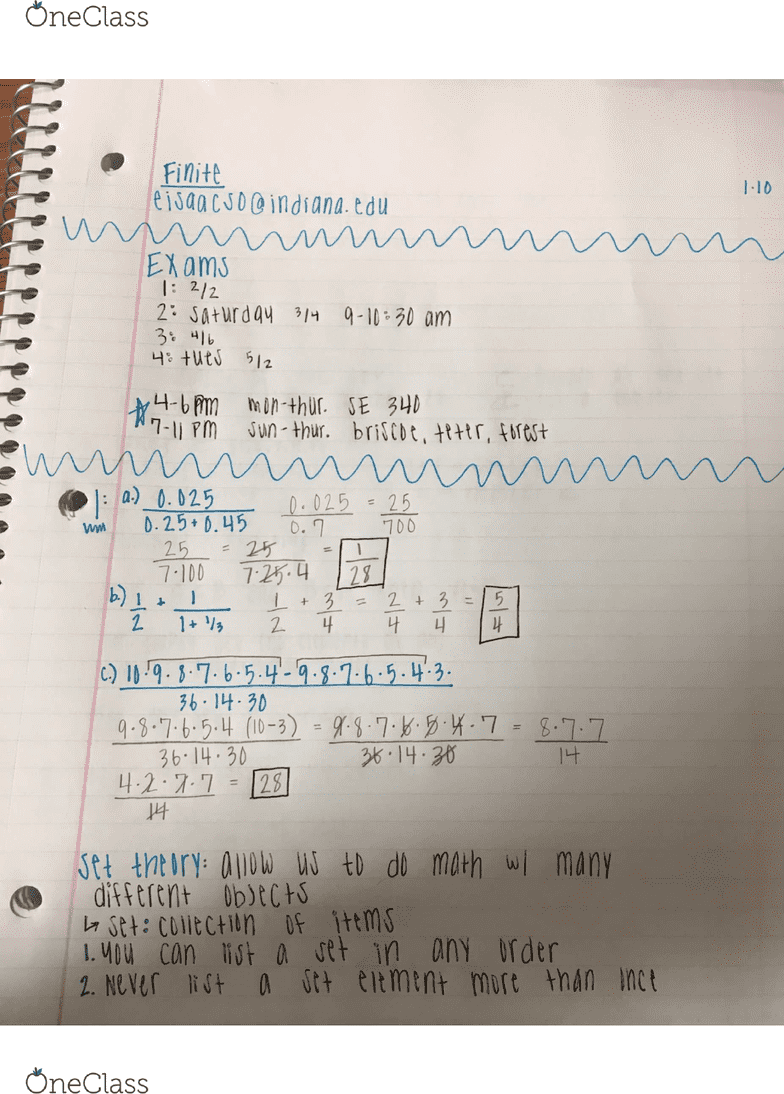 OneClass
Finite
1·10
eisaacso@indiana.edu
Exams
1: 2/2
2: saturday 3/4 9-10:30 am
3: 4/6
4: tues 5/2
4-6pm mon-thur. SE 340
7-11 PM sun-thur. briscoe, teter, forest
1: a.) 0.025 / 0.25+0.45 0.025 / 0.7 = 25 / 700
wm
25 / 7·100 = 25 / 7·25·4 = 1 / 28
b.) 1/2 + 1 / 1+1/3 1/2 + 3/4 = 2/4 + 3/4 = 5/4
c.) 10·9·8·7·6·5·4-9·8·7·6·5·4·3· / 36·14·30
9·8·7·6·5·4 (10-3) / 36·14·30 = 9·8·7·6·5·4·7 / 36·14·30 = 8·7·7 / 14
4·2·7·7 / 14 = 28
set theory: allow us to do math w/ many
different objects
↳ set: collection of items
1. you can list a set in any order
2. Never list a set element more than ince
OneClass